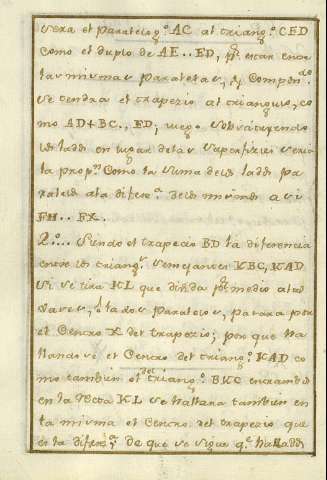 sera el paralelogº. AC al triangº. CED
como el duplo de AE..ED, pr. estar entre
las mismas paralelas, y Compondo.
se tendra el trapezio al triangulo, co
mo AD+BC.,ED; luego substituyendo
los lados en lugar de las superficies sera
la propn. Como la suma de los lados pa
ralelos a la diferena. de los mismos asi
FH..FX.
2º... Siendo el trapecio BD la diferencia
entre los triangs. semejantes KBC, KAD
si se tira KL que divida pr. medio a los
lados paralelos, pasara por
el Centro X del trapezio; por que ha
llandose el Centro del triangº. KAD co
mo tambien el del triangº. BKC entrambos
en la recta KL se hallara tambien en
la misma el Centro del trapezio que
es la diferena. de que se sigue qe. hallados